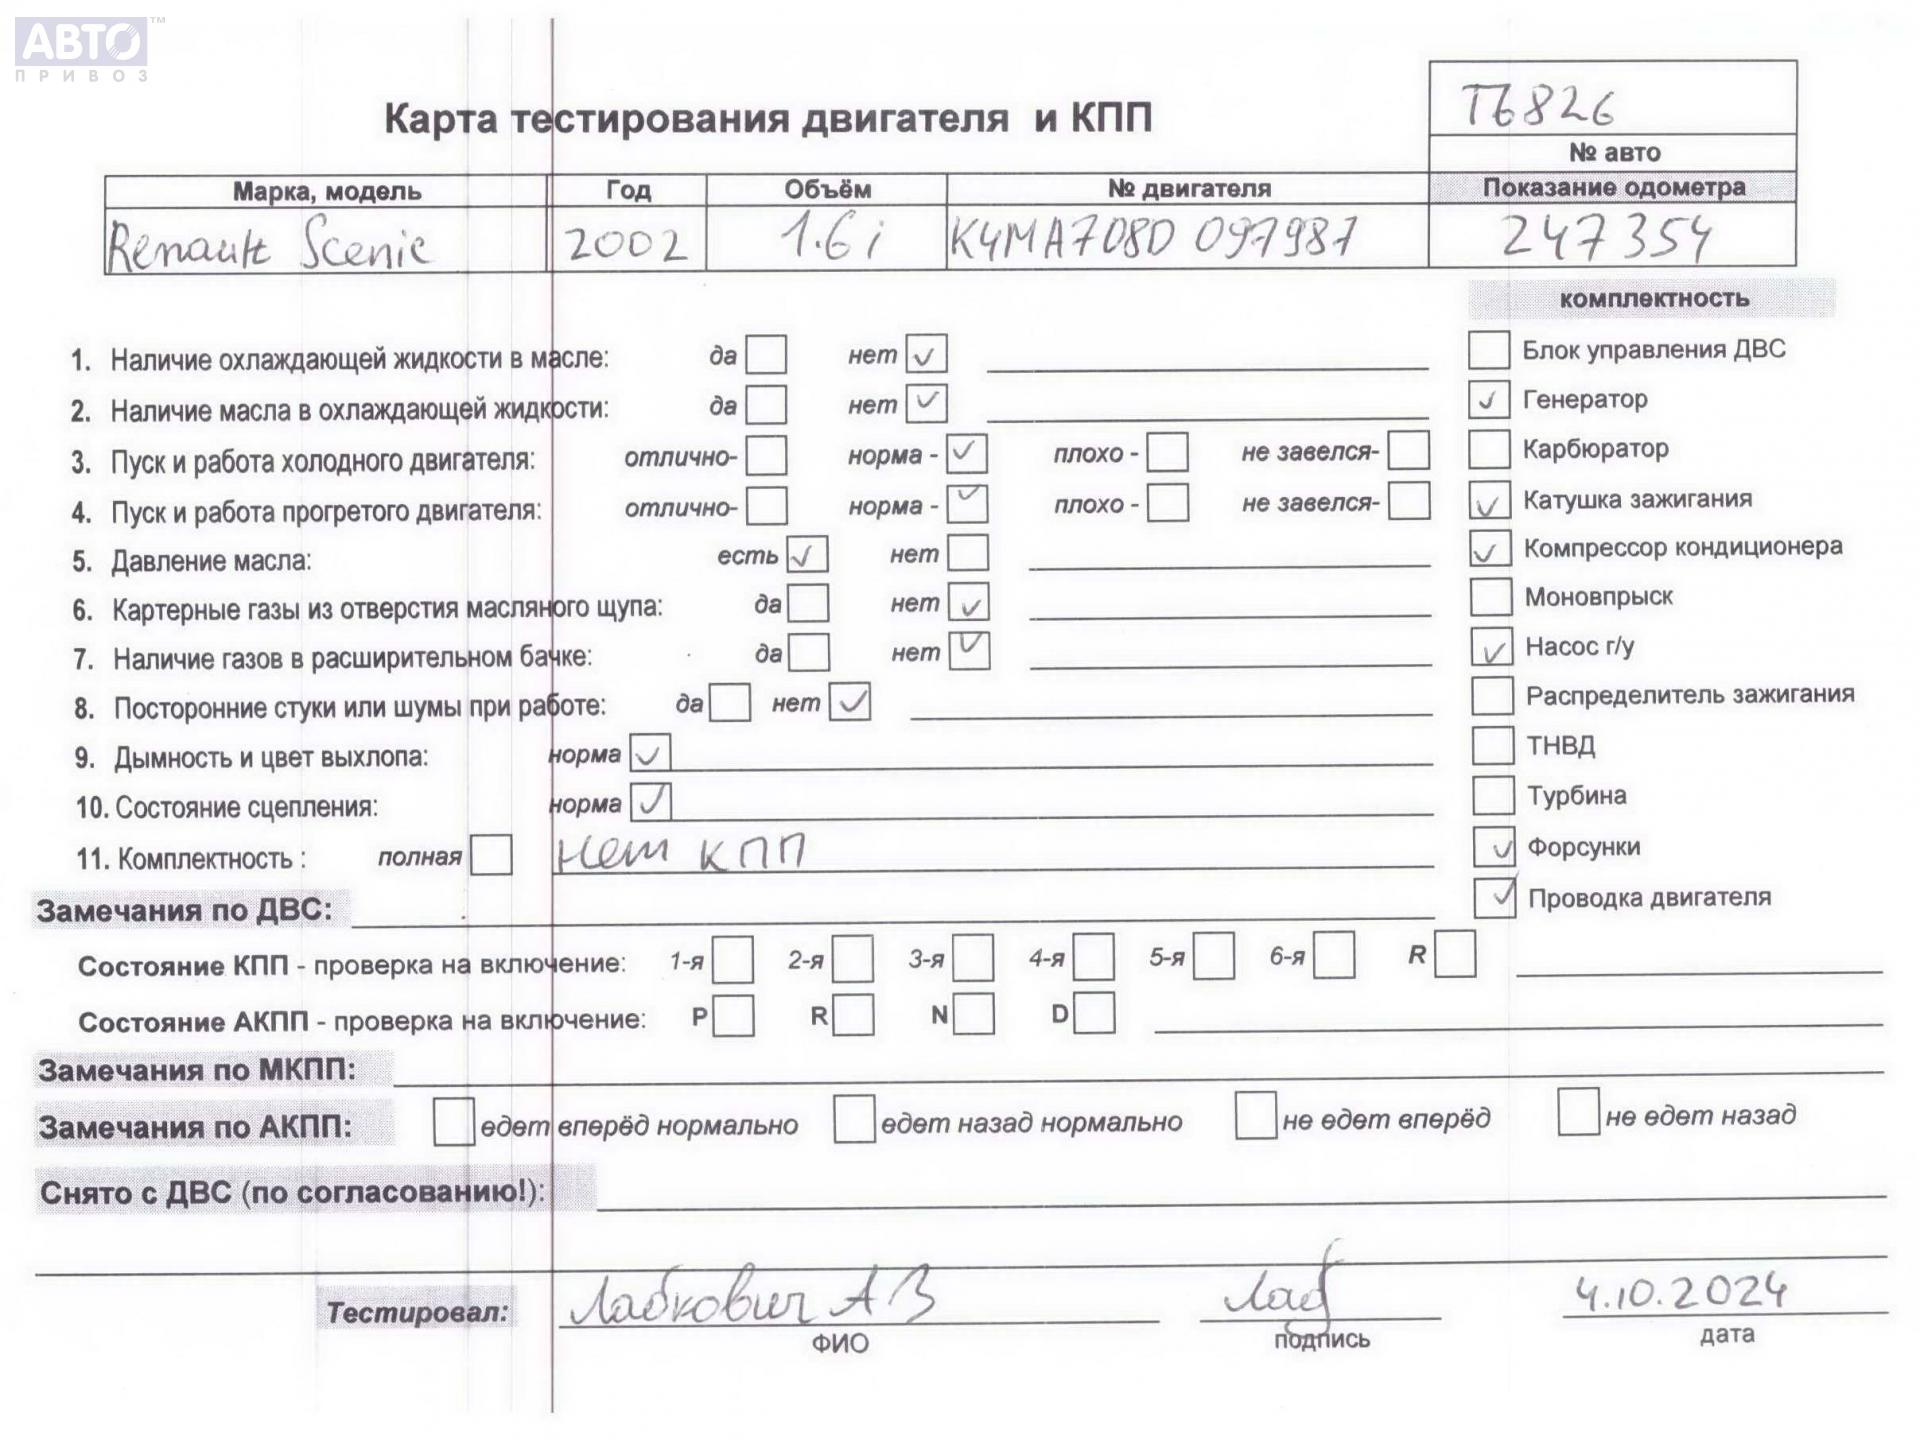 АВТО™
ПРИВОЗ
Карта тестирования двигателя и КПП
Т6826
№ авто
Марка, модель Год Объём № двигателя Показание одометра
Renault Scenic 2002 1.6i K4MA708D 097987 247354
комплектность
1. Наличие охлаждающей жидкости в масле: да нет ✓
Блок управления ДВС
2. Наличие масла в охлаждающей жидкости: да нет ✓
✓ Генератор
3. Пуск и работа холодного двигателя: отлично- норма - ✓ плохо - не завелся-
Карбюратор
4. Пуск и работа прогретого двигателя: отлично- норма - ✓ плохо - не завелся-
✓ Катушка зажигания
5. Давление масла: есть ✓ нет
✓ Компрессор кондиционера
6. Картерные газы из отверстия масляного щупа: да нет ✓
Моновпрыск
7. Наличие газов в расширительном бачке: да нет ✓
✓ Насос г/у
8. Посторонние стуки или шумы при работе: да нет ✓
Распределитель зажигания
9. Дымность и цвет выхлопа: норма ✓
ТНВД
10. Состояние сцепления: норма ✓
Турбина
11. Комплектность : полная нет КПП
✓ Форсунки
Замечания по ДВС:
✓ Проводка двигателя
Состояние КПП - проверка на включение: 1-я 2-я 3-я 4-я 5-я 6-я R
Состояние АКПП - проверка на включение: P R N D
Замечания по МКПП:
Замечания по АКПП: едет вперёд нормально едет назад нормально не едет вперёд не едет назад
Снято с ДВС (по согласованию!):
Тестировал: Лабкович А В Лаб 4.10.2024
ФИО подпись дата